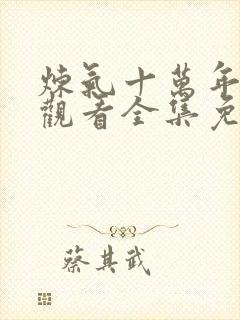 煉氣十萬年
觀看全集免
蔡其武